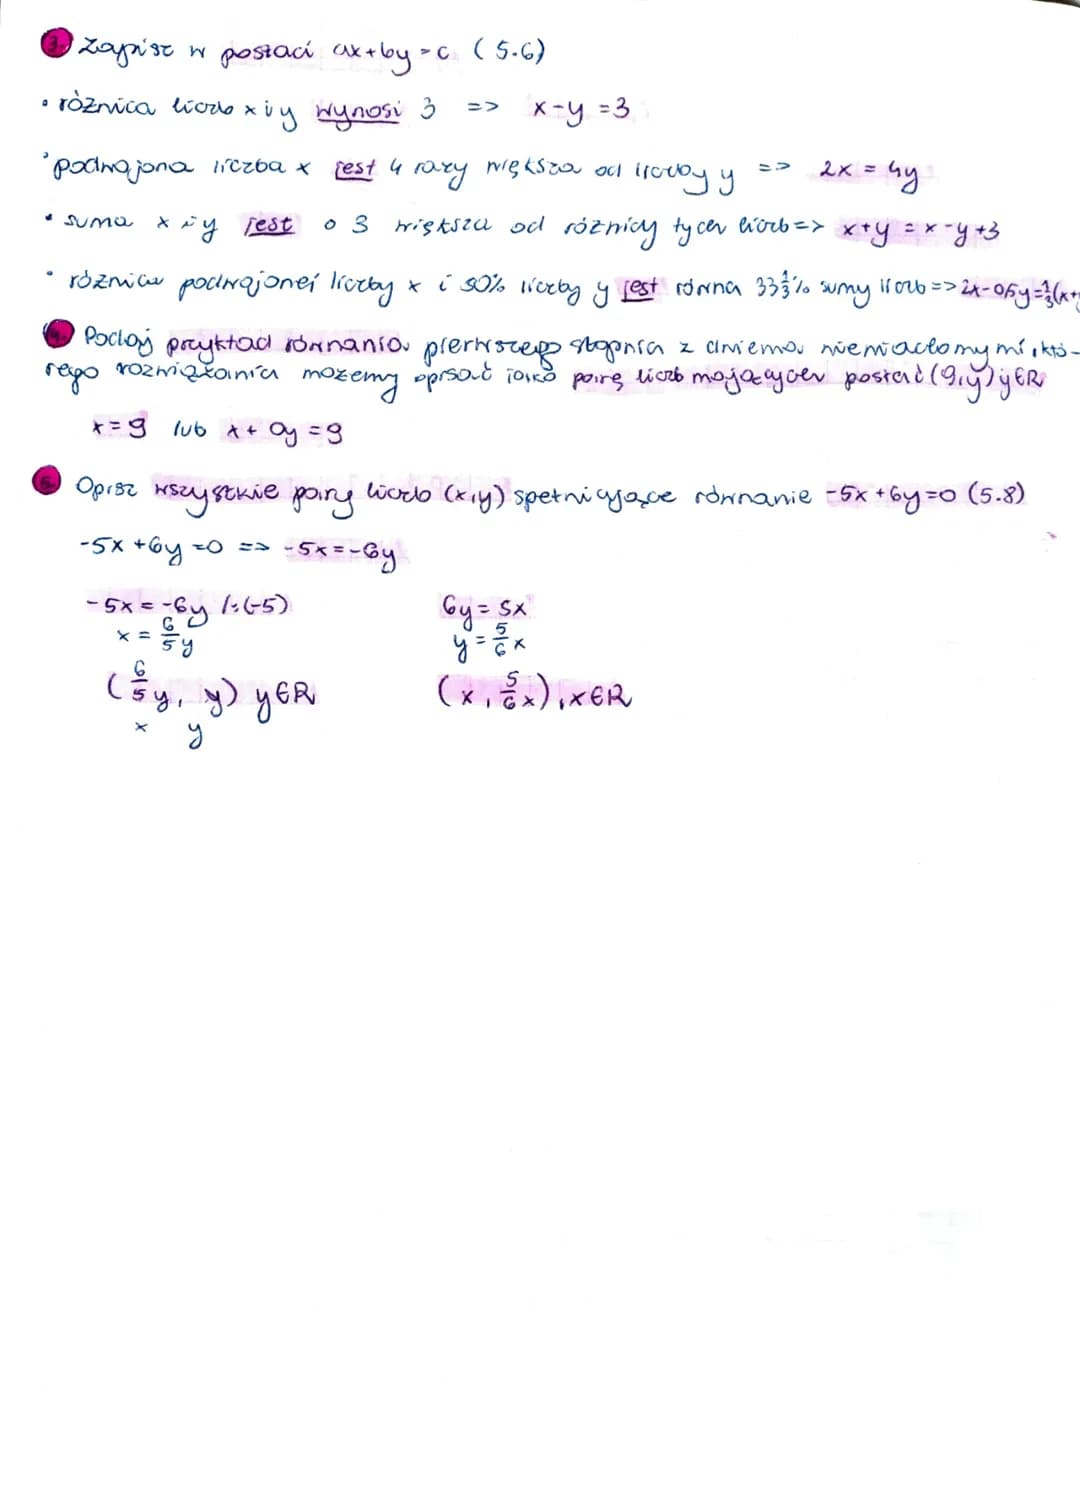 3. Zapisz w postaci ax+by=c (5.6)
• różnica liczb x i y wynosi 3 => x-y=3
• podwojona liczba x jest 4 razy większa od liczby y => 2x = 4y
• suma x i y jest o 3 większa od różnicy tych liczb => x+y = x-y+3
• różnica podwojonej liczby x i 50% liczby y jest równa 33⅓% sumy liczb => 2x-0,5y=⅓(x+y
Podaj przykład równania pierwszego stopnia z dwiema niewiadomymi, któ-
rego rozwiązania możemy opisać jako parę liczb mających postać (9,y) y∈R
x=9 lub x+0y=9
5. Opisz wszystkie pary liczb (x,y) spełniające równanie -5x+6y=0 (5.8)
-5x+6y=0 => -5x=-6y
-5x=-6y /:(-5) 6y=5x
x = 6/5 y y = 5/6 x
(6/5 y, y) y∈R (x, 5/6 x), x∈R
x y